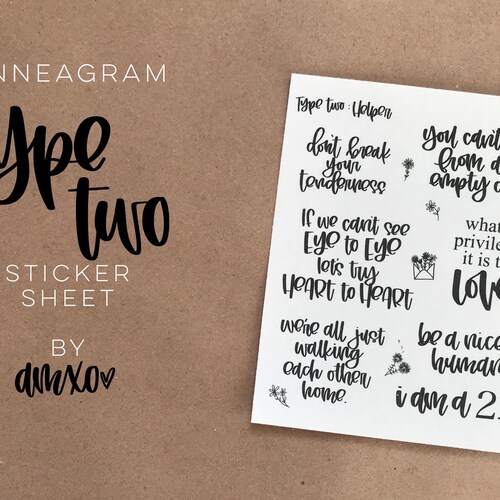 NNEAGRAM
ype
two
STICKER
SHEET
BY
amxo
Type two: Helper
don't break
your
tenderness
If we can't see
EyE to EyE
let's try
HEART to HEART
we're all just
walking
each other
home.
you can't
from a
empty c
what
privile
it is t
love
be a nice
human
i am a 2